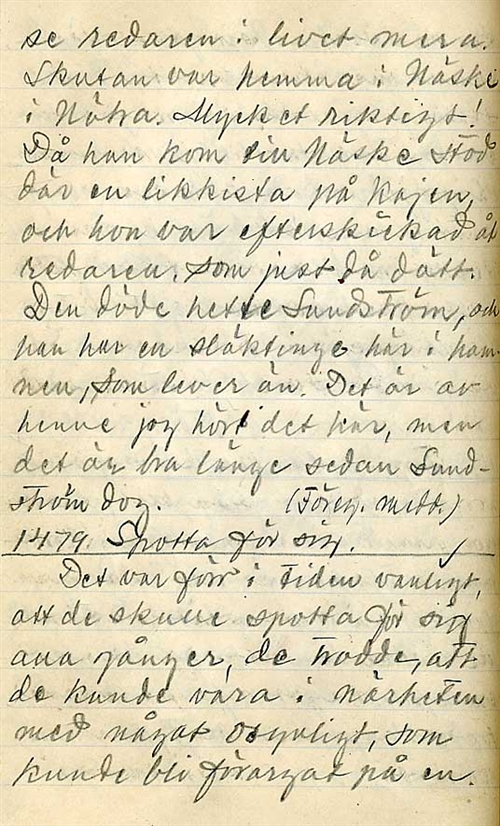 se redaren i livet mera.
Skutan var hemma i Näske
i Nätra. Mycket riktigt!
Då han kom till Näske stod
där en likkista på kajen,
och hon var efterskickad åt
redaren, som just då dött.
Den döde hette Sundström, och
han har en släktinge här i ham-
nen, som lever än. Det är av
henne jag hört det här, men
det är bra länge sedan Sund-
ström dog. (Föreg. medd.)
1479. Spotta för sig.
Det var förr i tiden vanligt,
att de skulle spotta för sig
alla gånger, de trodde, att
de kunde vara i närheten
med något osynligt, som
kunde bli förargat på en.